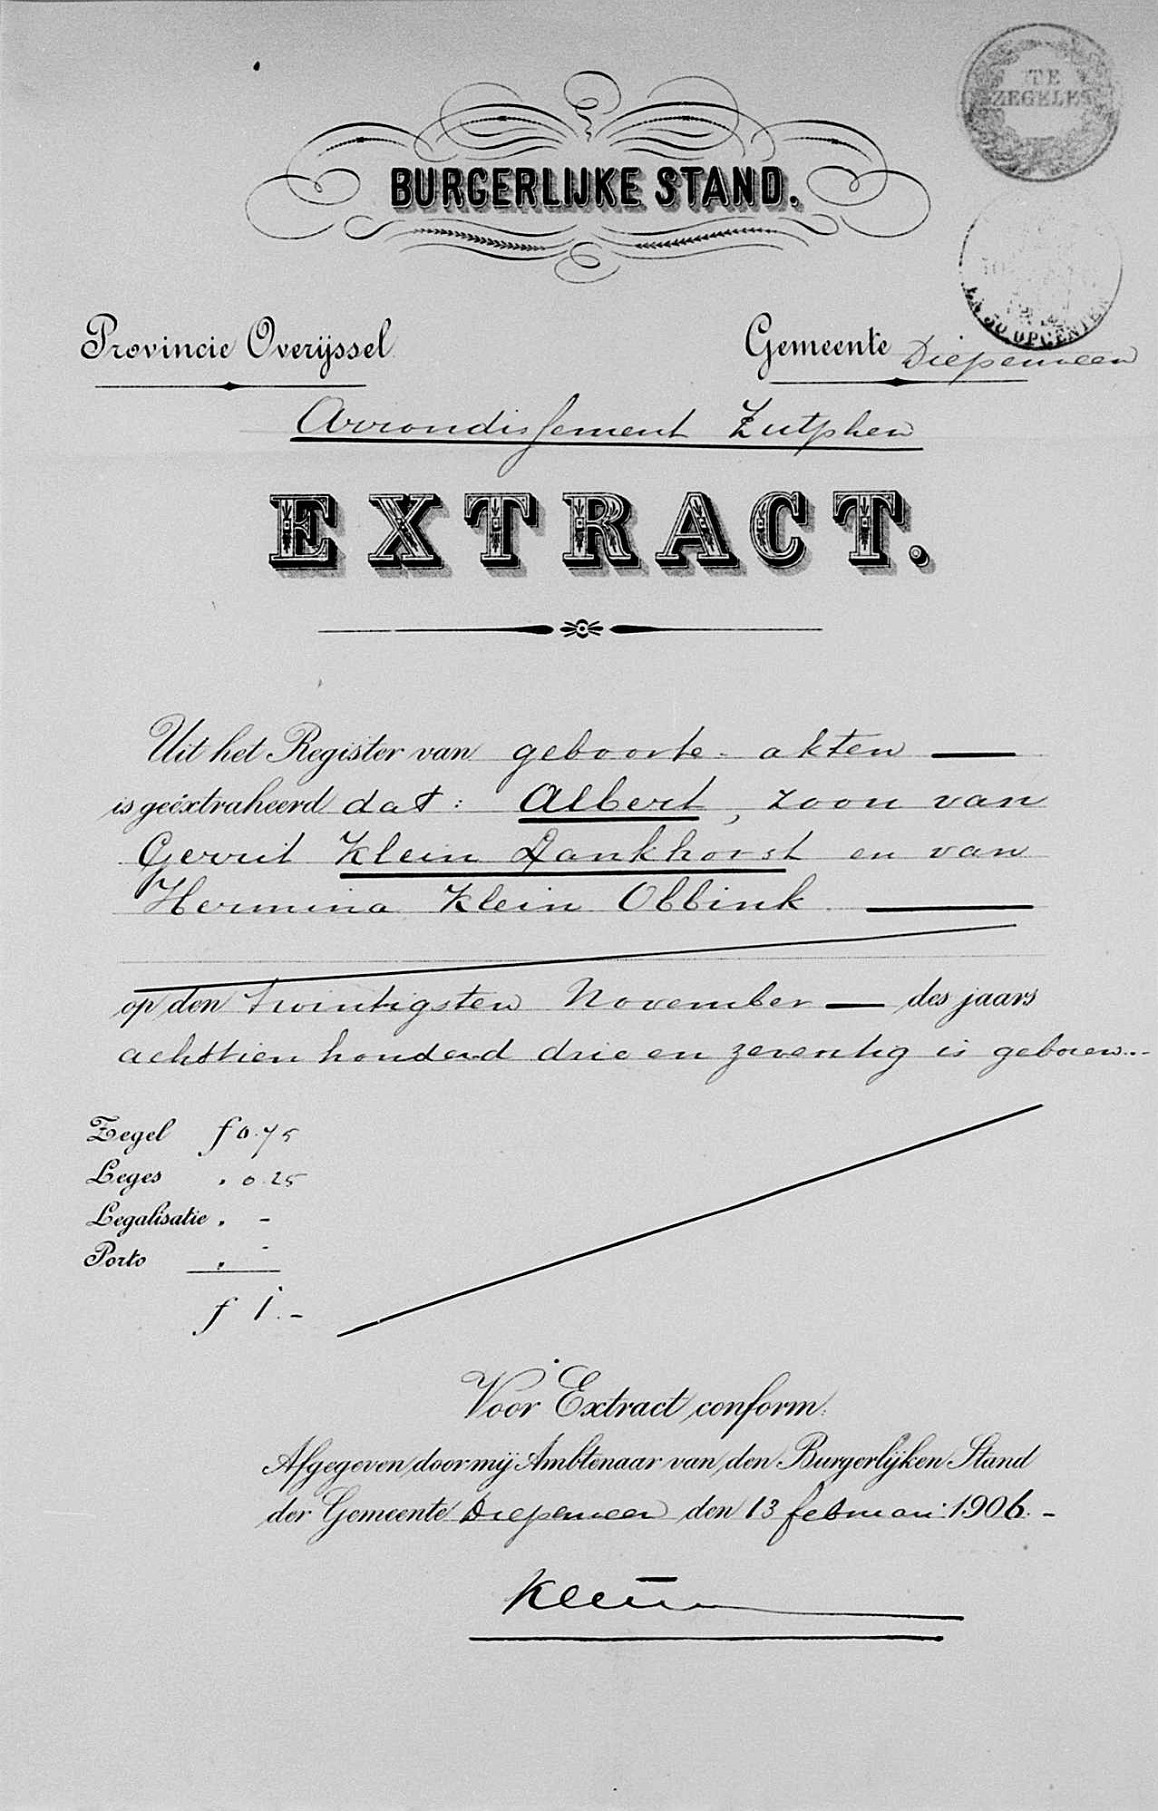 TE
ZEGELEN
BURGERLIJKE STAND.
50 OPCENTEN
Provincie Overijssel
Gemeente Diepenveen
Arrondissement Zutphen
EXTRACT.
Uit het Register van geboorte-akten
is geëxtraheerd dat: Albert, zoon van
Gerrit Klein Lankhorst en van
Hermina Klein Obbink
op den twintigsten November des jaars
achttien honderd drie en zeventig is geboren.
Zegel f 0.75
Leges " 0.25
Legalisatie " -
Porto " -
f 1.-
Voor Extract conform:
Afgegeven door mij Ambtenaar van den Burgerlijken Stand
der Gemeente Diepenveen den 13 februari 1906.-